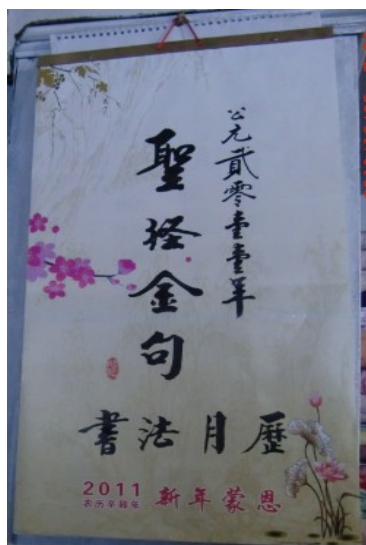 公元貳零壹壹年
聖经金句
書法月歷
2011
农历辛卯年
新年蒙恩